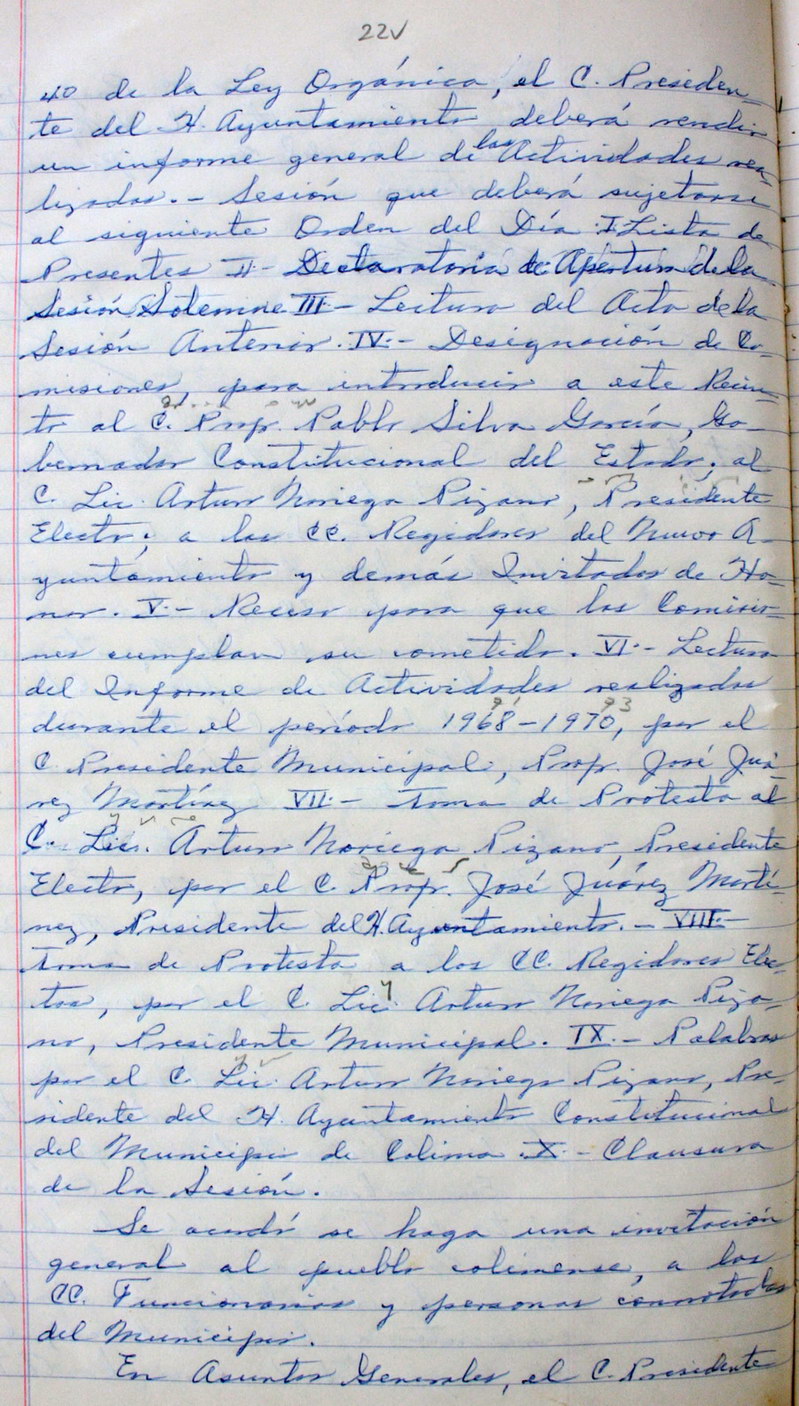 22v
40 de la Ley Orgánica, el C. Presiden-
te del H. Ayuntamiento deberá rendir
un informe general de las Actividades rea-
lizadas.- Sesión que deberá sujetarse
al siguiente Orden del Día: I Lista de
Presentes II.- Declaratoria de Apertura de la
Sesión Solemne III.- Lectura del Acta de la
Sesión Anterior. IV.- Designación de Co-
misiones, para introducir a este Recin-
to al C. Prof. Pablo Silva García, Go-
bernador Constitucional del Estado; al
C. Lic. Arturo Noriega Pizano, Presidente
Electo; a los CC. Regidores del Nuevo A-
yuntamiento y demás Invitados de Ho-
nor. V.- Receso para que las Comisio-
nes cumplan su cometido. VI.- Lectura
del Informe de Actividades realizadas
durante el período 1968-1970, por el
C. Presidente Municipal, Prof. José Juá-
rez Martínez VII.- Toma de Protesta al
C. Lic. Arturo Noriega Pizano, Presidente
Electo, por el C. Prof. José Juárez Martí-
nez, Presidente del H. Ayuntamiento.- VIII.-
Toma de Protesta a los CC. Regidores Elec-
tos, por el C. Lic. Arturo Noriega Piza-
no, Presidente Municipal. IX.- Palabras
por el C. Lic. Arturo Noriega Pizano, Pre-
sidente del H. Ayuntamiento Constitucional
del Municipio de Colima. X.- Clausura
de la Sesión.
Se acordó se haga una invitación
general al pueblo colimense, a los
CC. Funcionarios y personas connotadas
del Municipio.
En Asuntos Generales, el C. Presidente